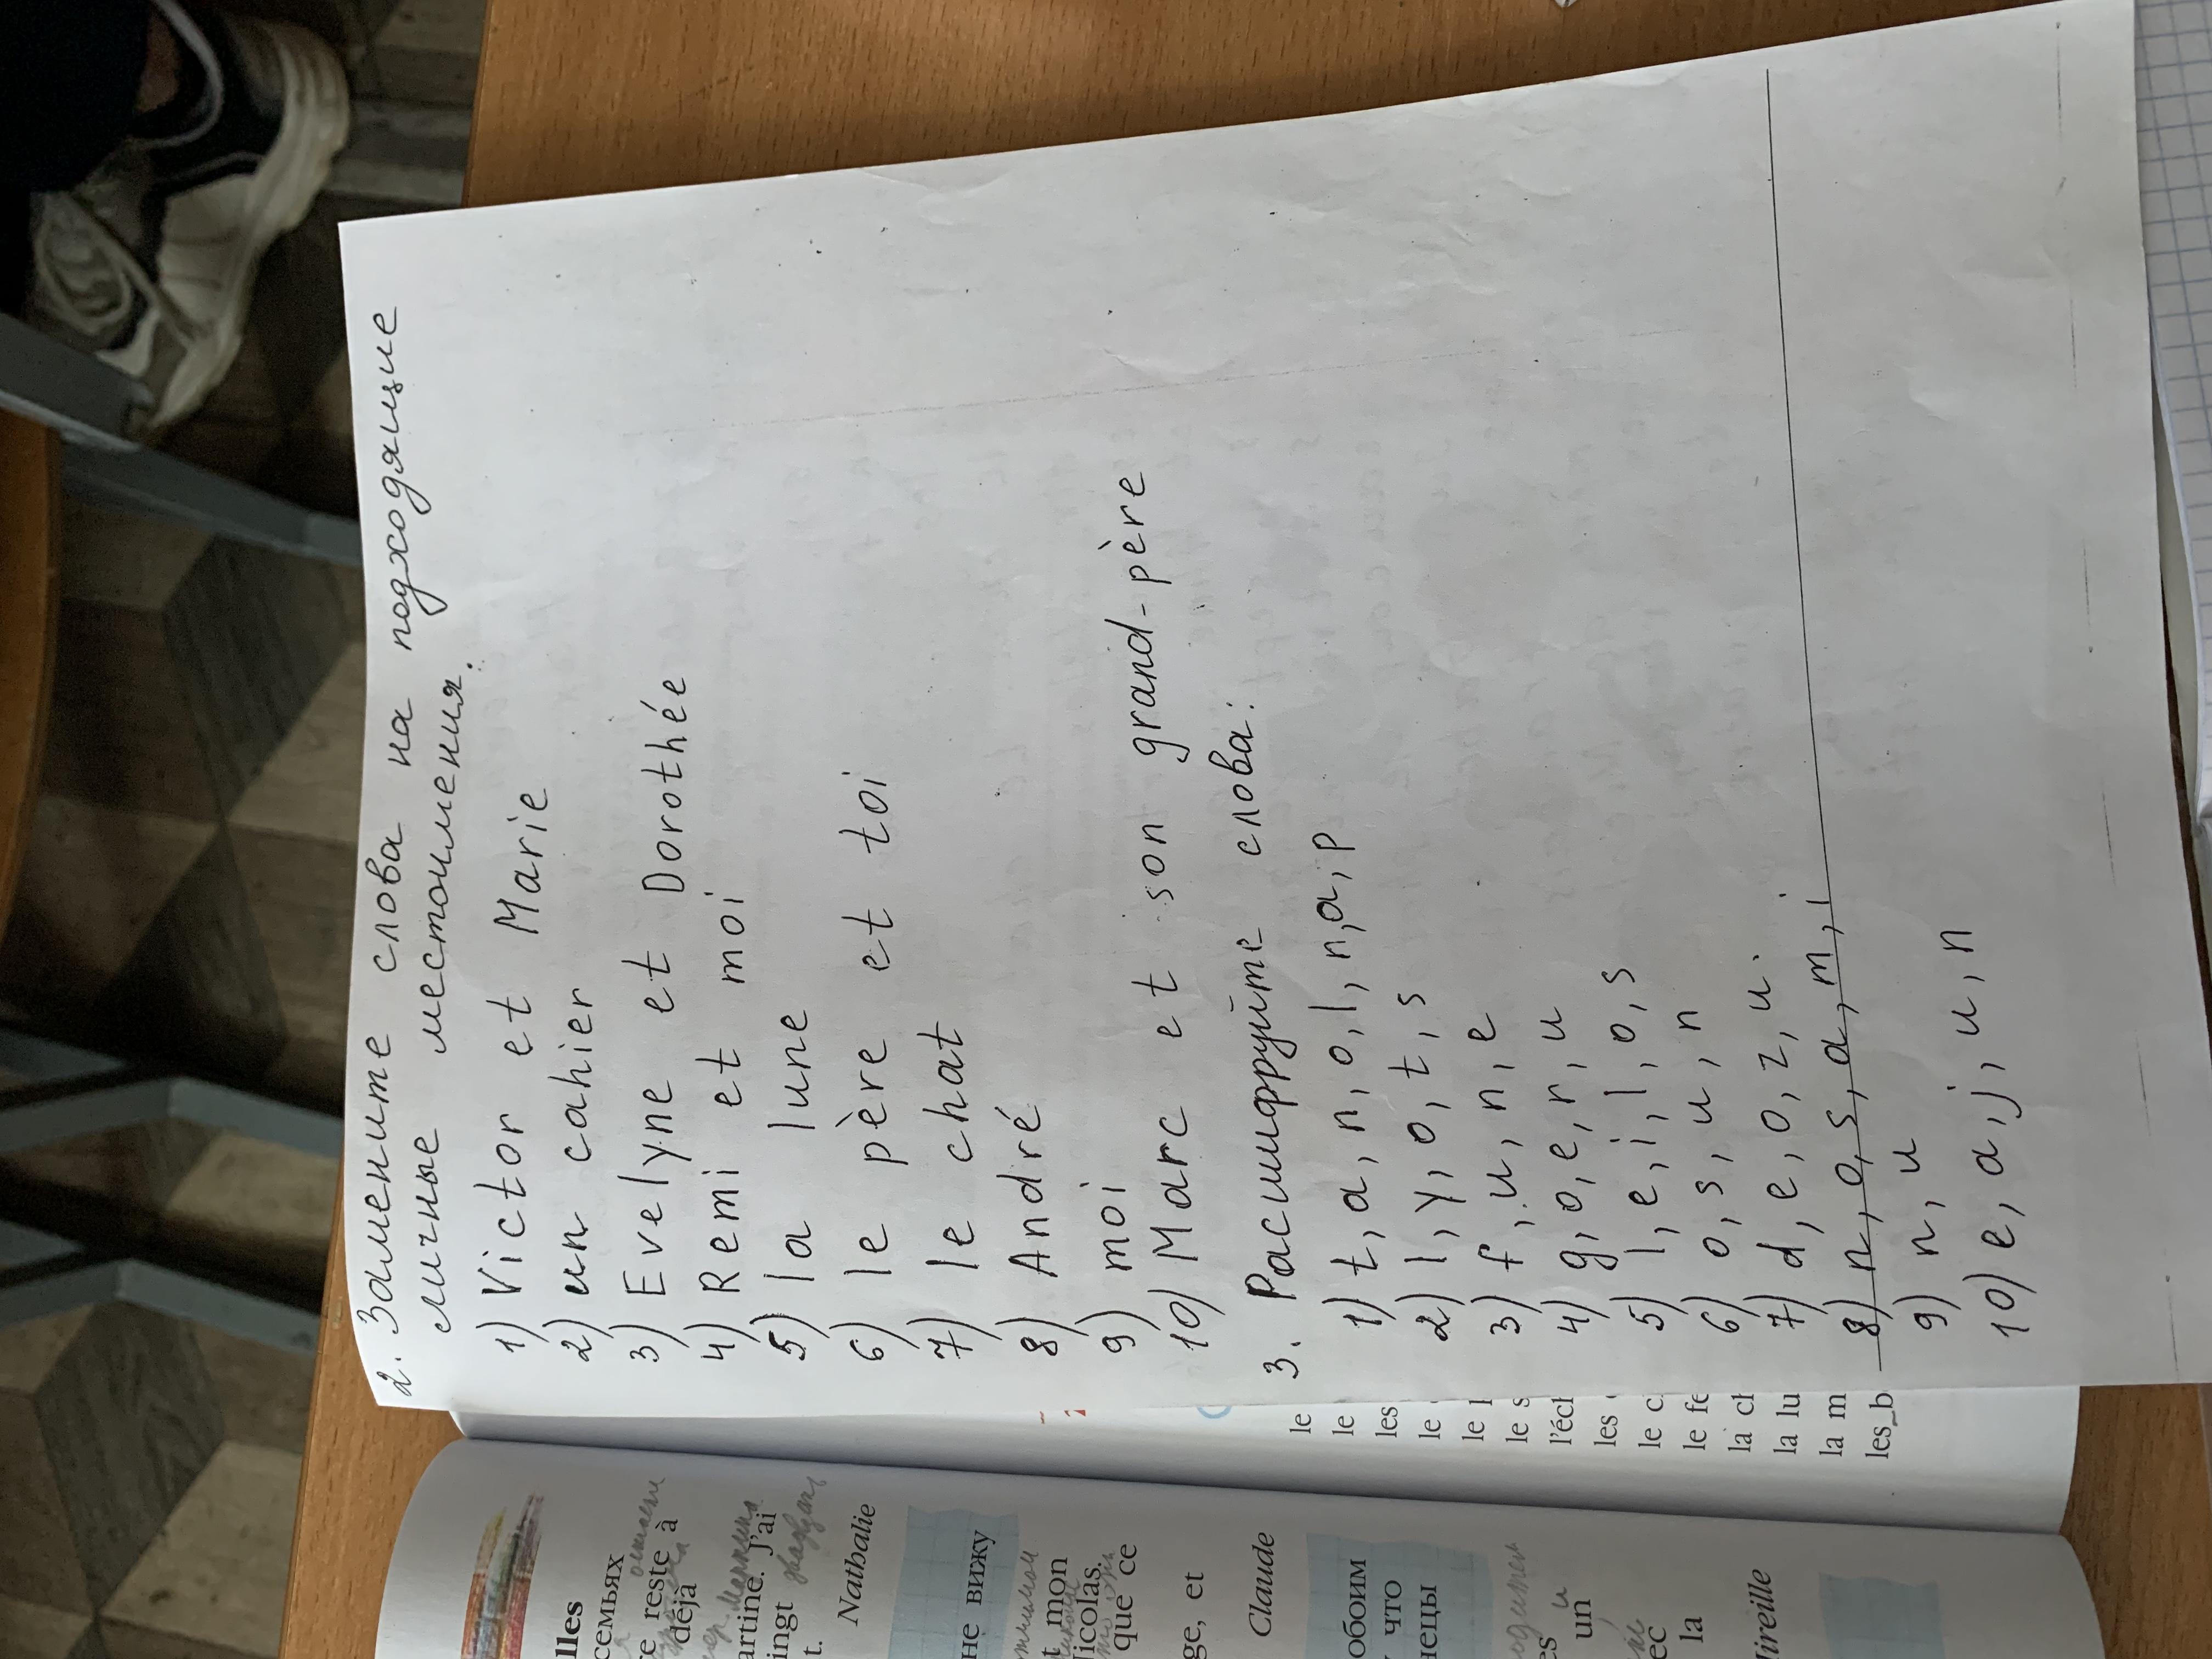 2. Замените слова на подходящие
личные местоимения.
1) Victor et Marie
2) un cahier
3) Evelyne et Dorothée
4) Remi et moi
5) la lune
6) le père et toi
7) le chat
8) André
9) moi
10) Marc et son grand-père
3. Расшифруйте слова:
1) t, a, n, o, l, n, a, p
2) l, y, o, t, s
3) f, u, n, e
4) g, o, e, r, u
5) l, e, i, l, o, s
6) o, s, u, n
7) d, e, o, z, u.
8) n, o, s, a, m, i
9) n, u
10) e, a, j, u, n
lles
семьях
re reste à
déjà
artine. J'ai
ingt
t.
Nathalie
не вижу
t mon
Nicolas.
que ce
ge, et
Claude
обоим
что
нецы
es
un
ec
la
Mireille
le
le
les
le
le l
le s
l'écl
les
le c
le fe
la ch
la lu
la m
les b